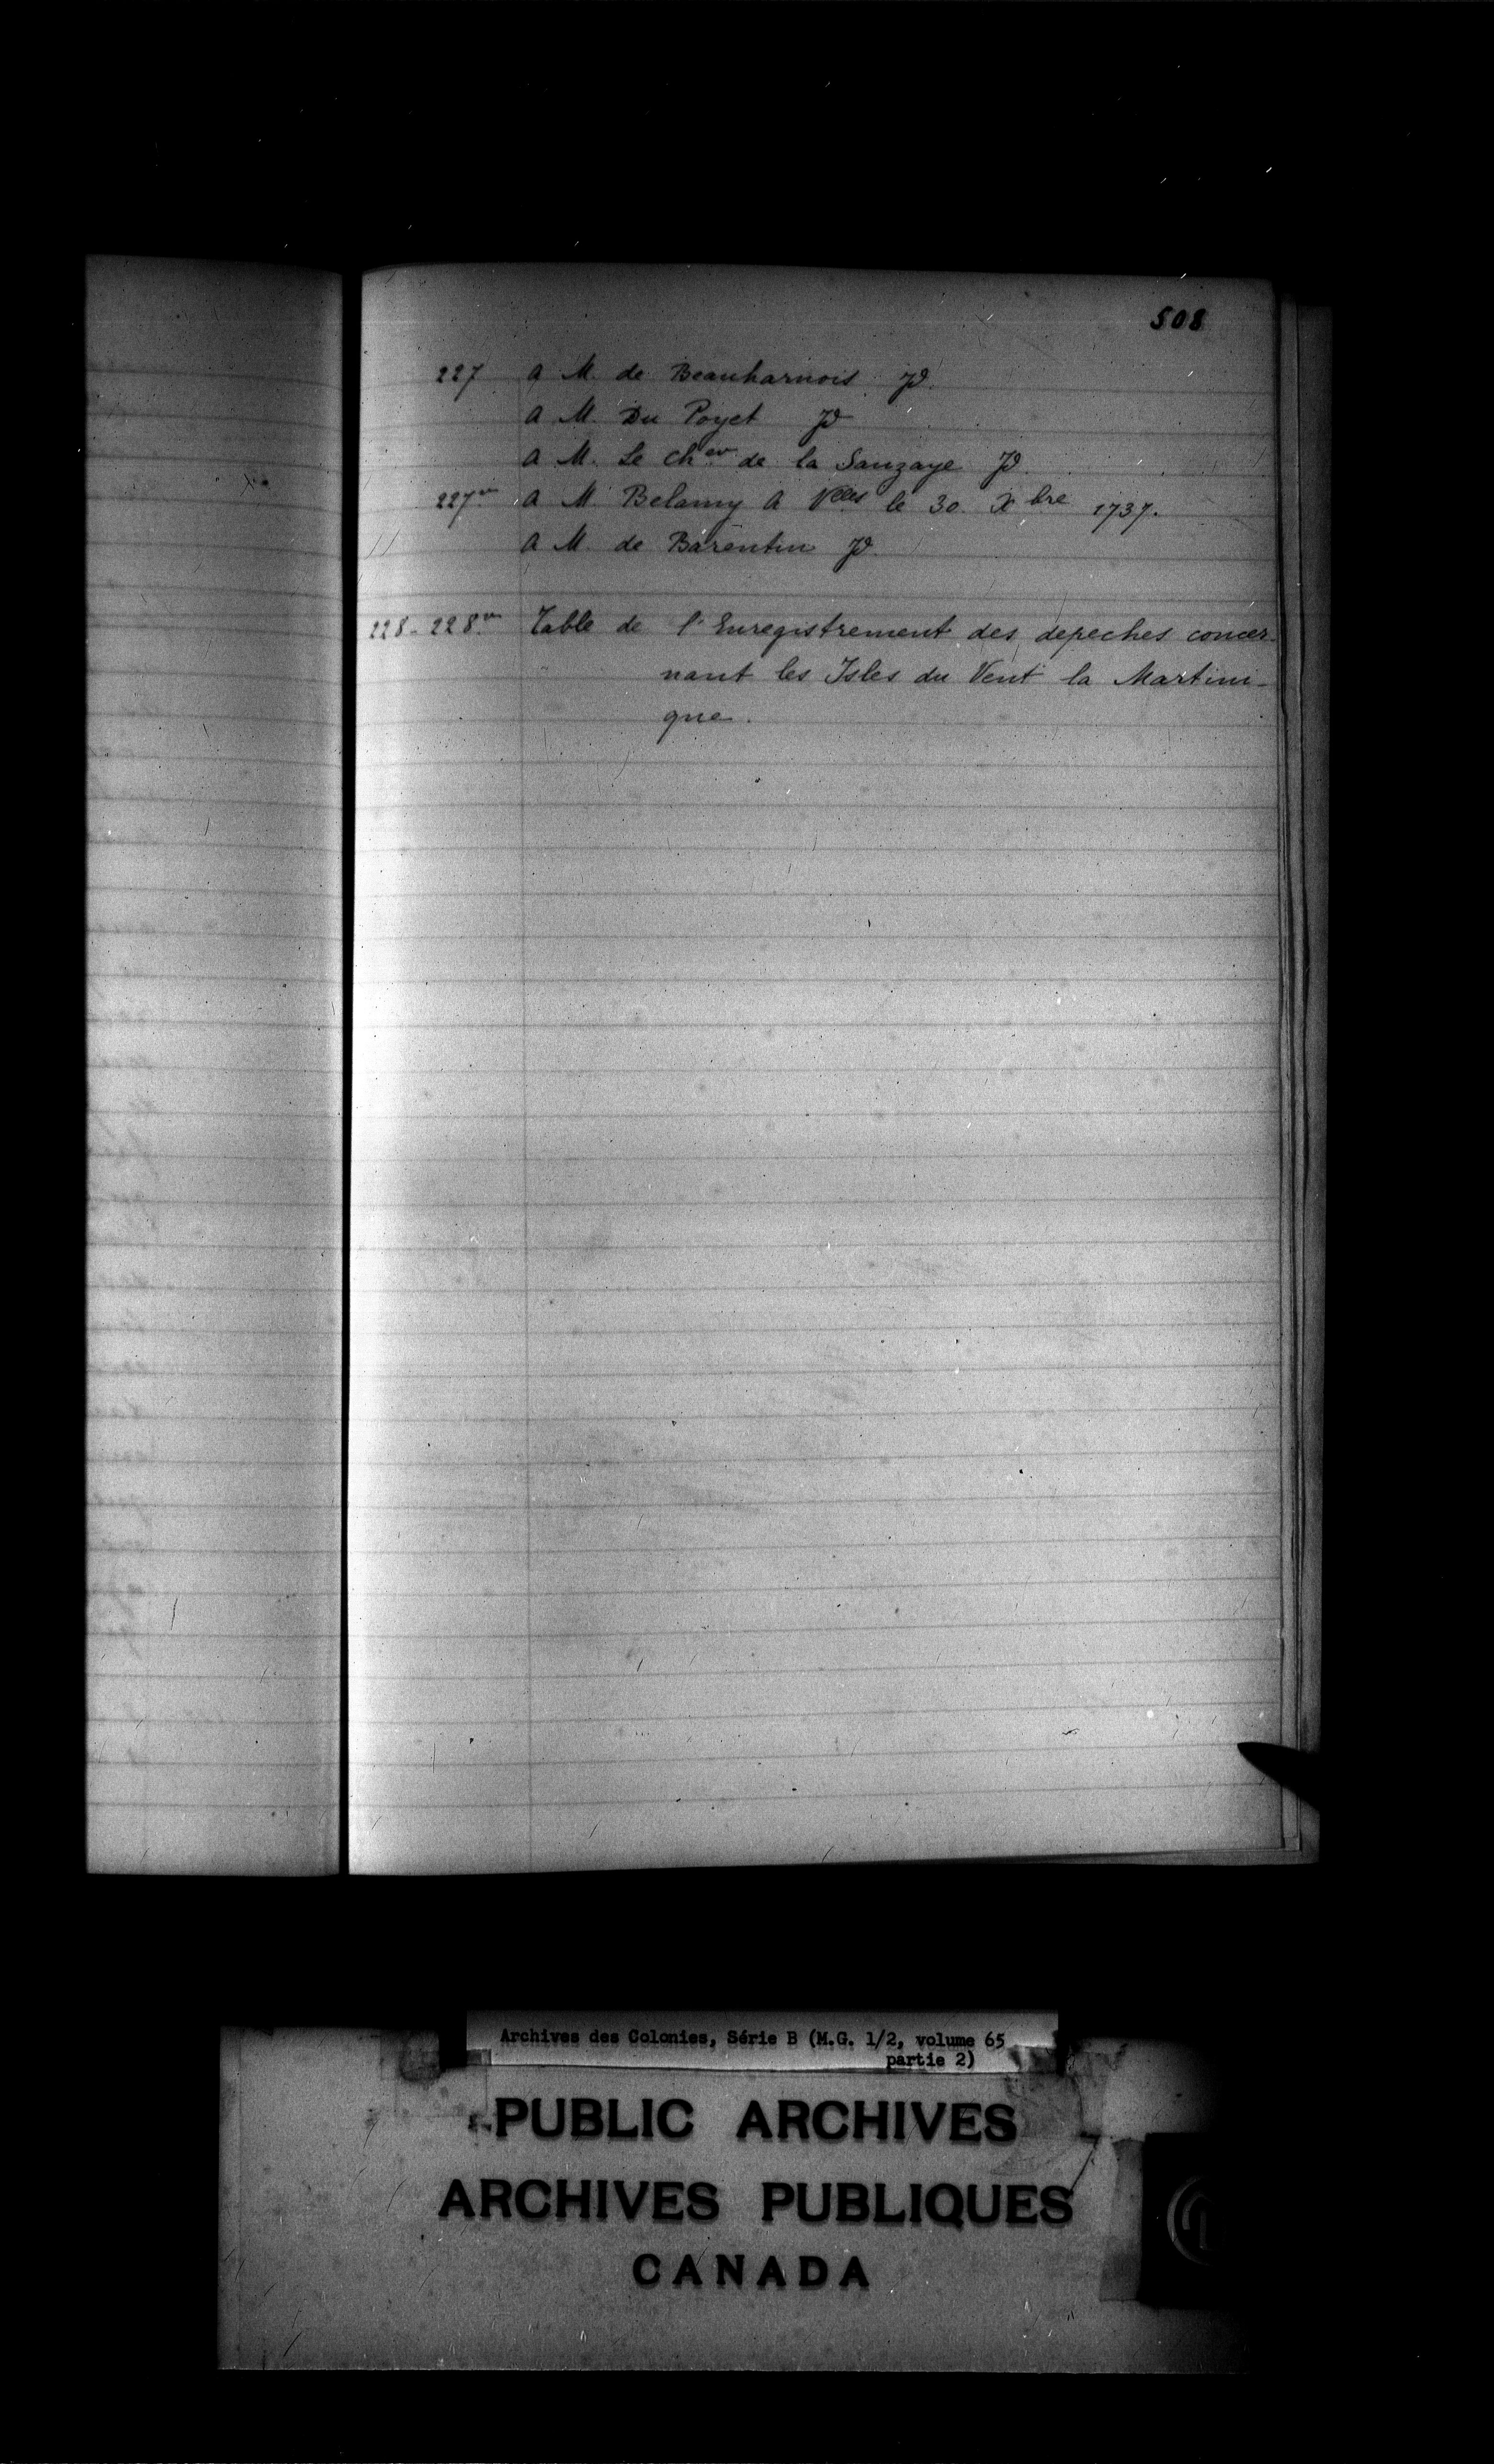 508
227 A M. de Beauharnois Jd.
A M. Du Poyet Jd
A M. Le Ch.er de la Sauzaye Jd.
227vo A M. Belamy A Vlles le 30. Xbre 1737.
A M. de Barentin Jd.
228-228vo Table de l'Enregistrement des depeches concer-
nant les Isles du Vent la Martini-
que.
Archives des Colonies, Série B (M.G. 1/2, volume 65
partie 2)
PUBLIC ARCHIVES
ARCHIVES PUBLIQUES
CANADA